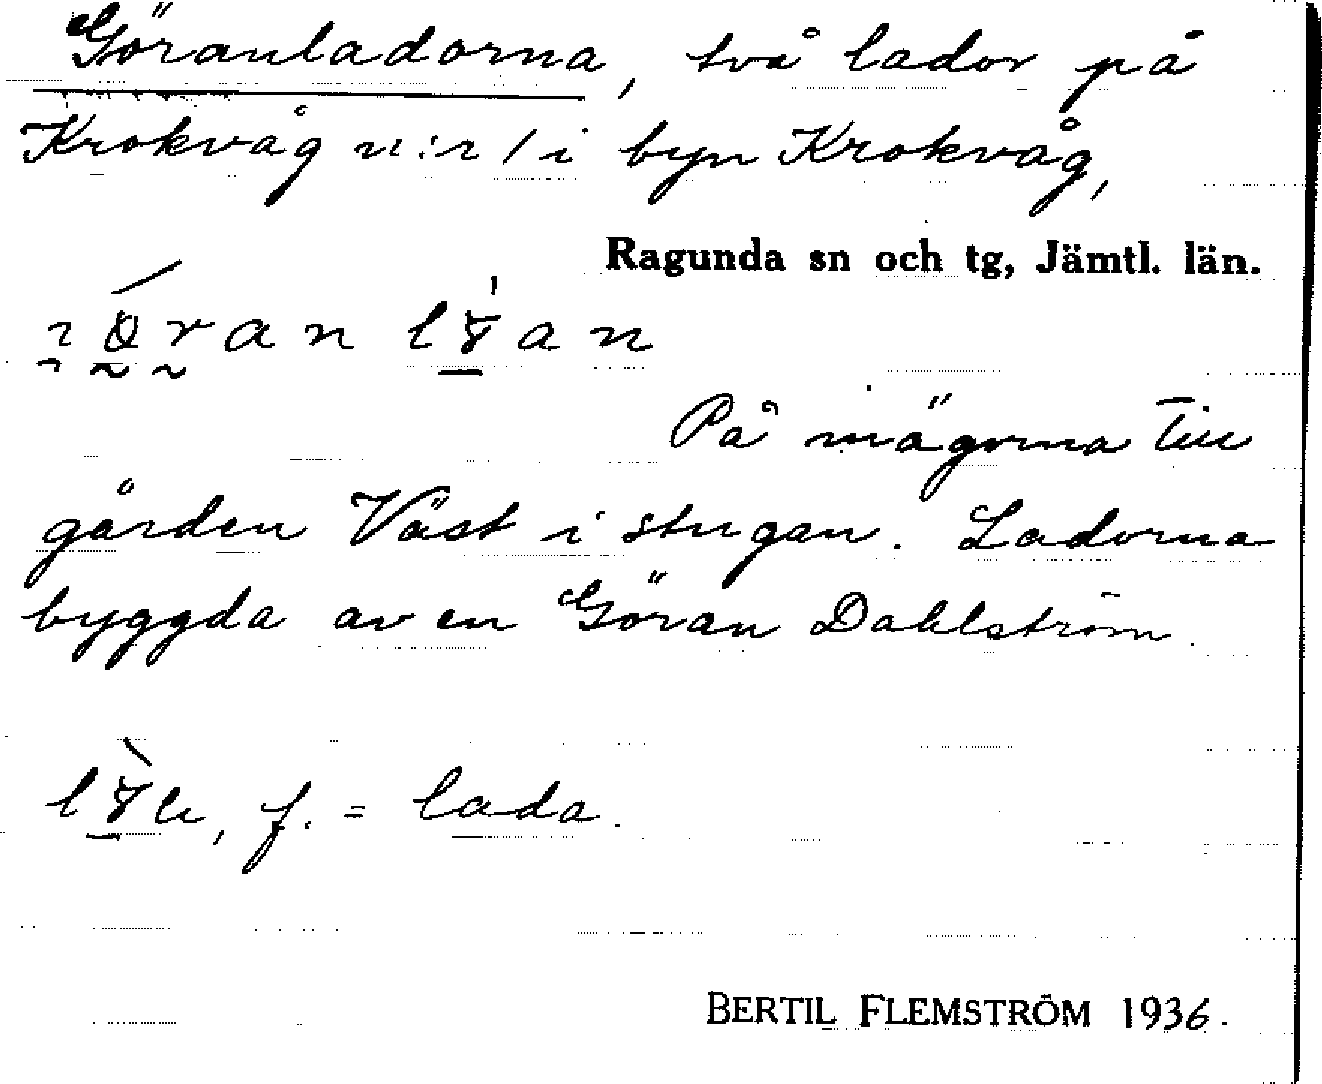 Göranladorna, två lador på
Krokvåg n:r 1 i byn Krokvåg,
Ragunda sn och tg, Jämtl. län.
På mägorna till
gården Väst i stugan. Ladorna
byggda av en Göran Dahlström.
f. = lada.
BERTIL FLEMSTRÖM 1936.